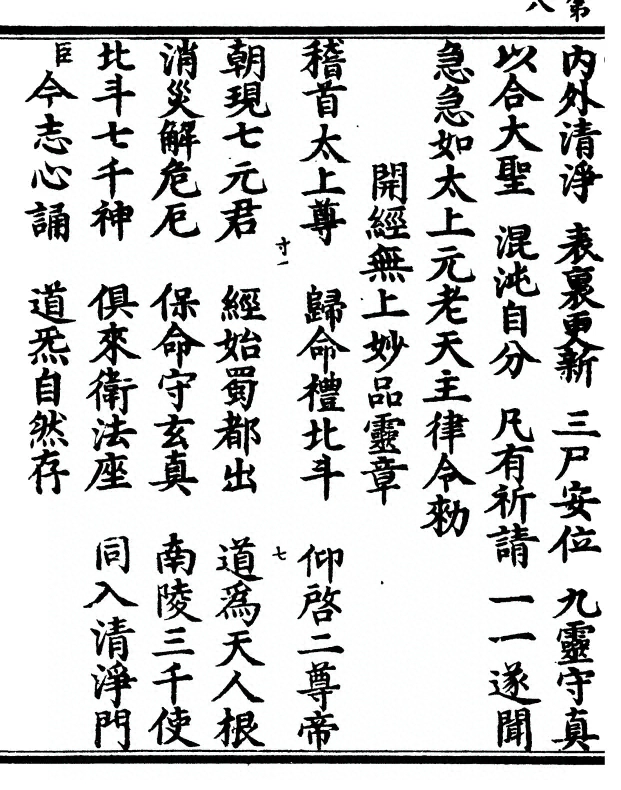 內外清淨 表裏更新 三尸安位 九靈守真
以合大聖 混沌自分 凡有祈請 一一遂聞
急急如太上元老天主律令勑
開經無上妙品靈章
稽首太上尊 歸命禮北斗 仰啓二尊帝
朝現七元君 經始蜀都出 道爲天人根
消災解危厄 保命守玄真 南陵三千使
北斗七千神 俱來衛法座 同入清淨門
臣今志心誦 道炁自然存